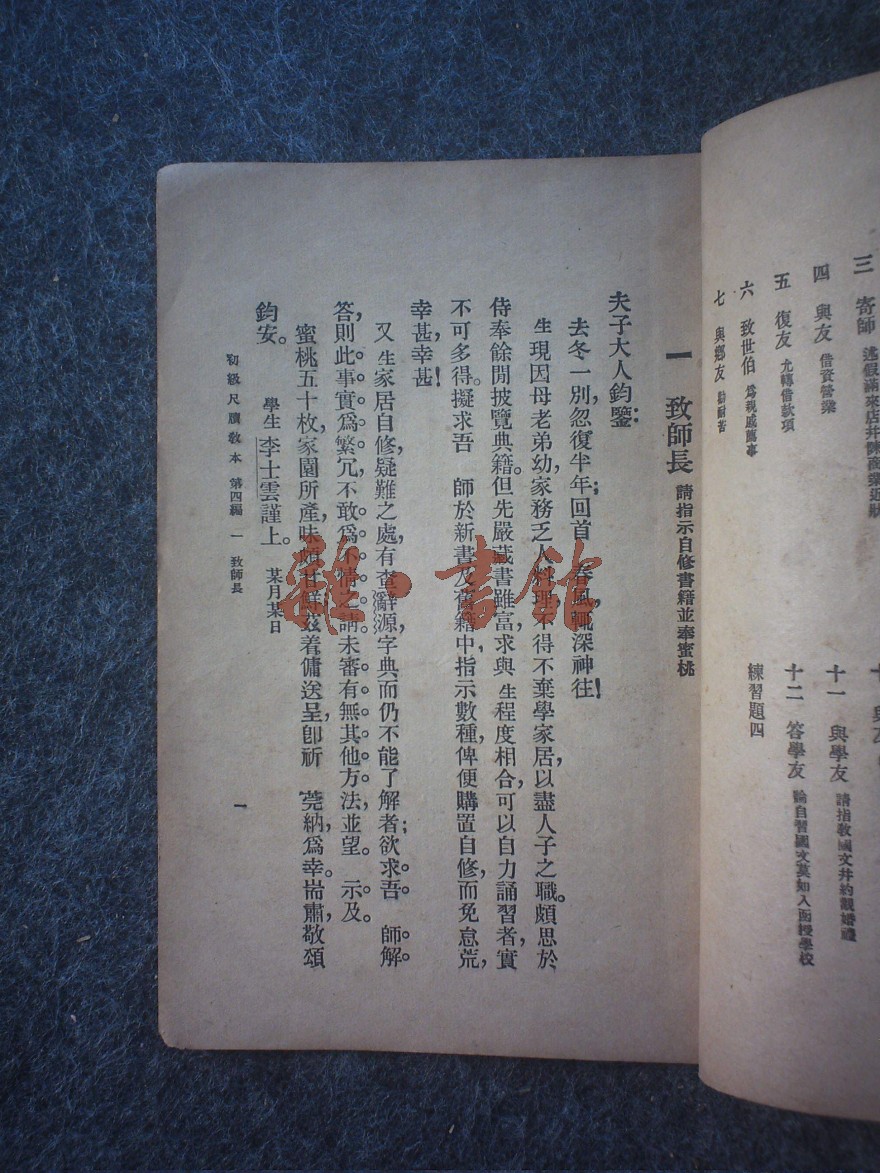 三　寄師　述假滿來店并陳商業近狀
四　與友　借資營業
五　復友　允轉借款項
六　致世伯　爲親戚薦事
七　與鄉友　勸耐苦
十一　與學友　請指教國文并約觀婚禮
十二　答學友　論自習國文莫如入函授學校
練習題四
一　致師長　請指示自修書籍並奉蜜桃
夫子大人鈞鑒：
去冬一別，忽復半年；回首　春風，輒深神往！
生現因母老弟幼，家務乏人料理，不得不棄學家居，以盡人子之職。頗思於
侍奉餘閒，披覽典籍。但先嚴藏書雖富，求與生程度相合，可以自力誦習者，實
不可多得。擬求吾　師於新書及舊籍中，指示數種，俾便購置自修，而免怠荒，
幸甚幸甚！
又生家居自修，疑難之處，有查辭源字典而仍不能了解者；欲求吾　師解
答，則此事實爲繁冗，不敢爲不情之請，未審有無其他方法，並望　示及。
蜜桃五十枚，家園所產，味頗甘鮮，茲着傭送呈，卽祈　莞納，爲幸。耑肅，敬頌
鈞安。
學生李士雲謹上。　某月某日
初級尺牘教本　第四編　一　致師長
一
雜·書館